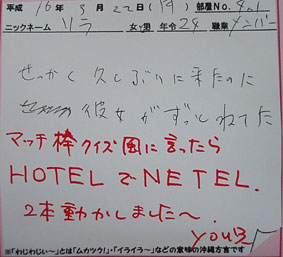 平成 16年 5月 22日(月) 部屋No.401
ニックネーム ソラ 女・男 年令24 職業 メンバー
せっかく久しぶりに来たのに
彼女がずっとねてた
マッチ棒クイズ風に言ったら
HOTELでNETEL.
2本動かしました〜.
※「わじわじぃ〜」とは「ムカツク!」・「イライラ〜」などの意味の沖縄方言です